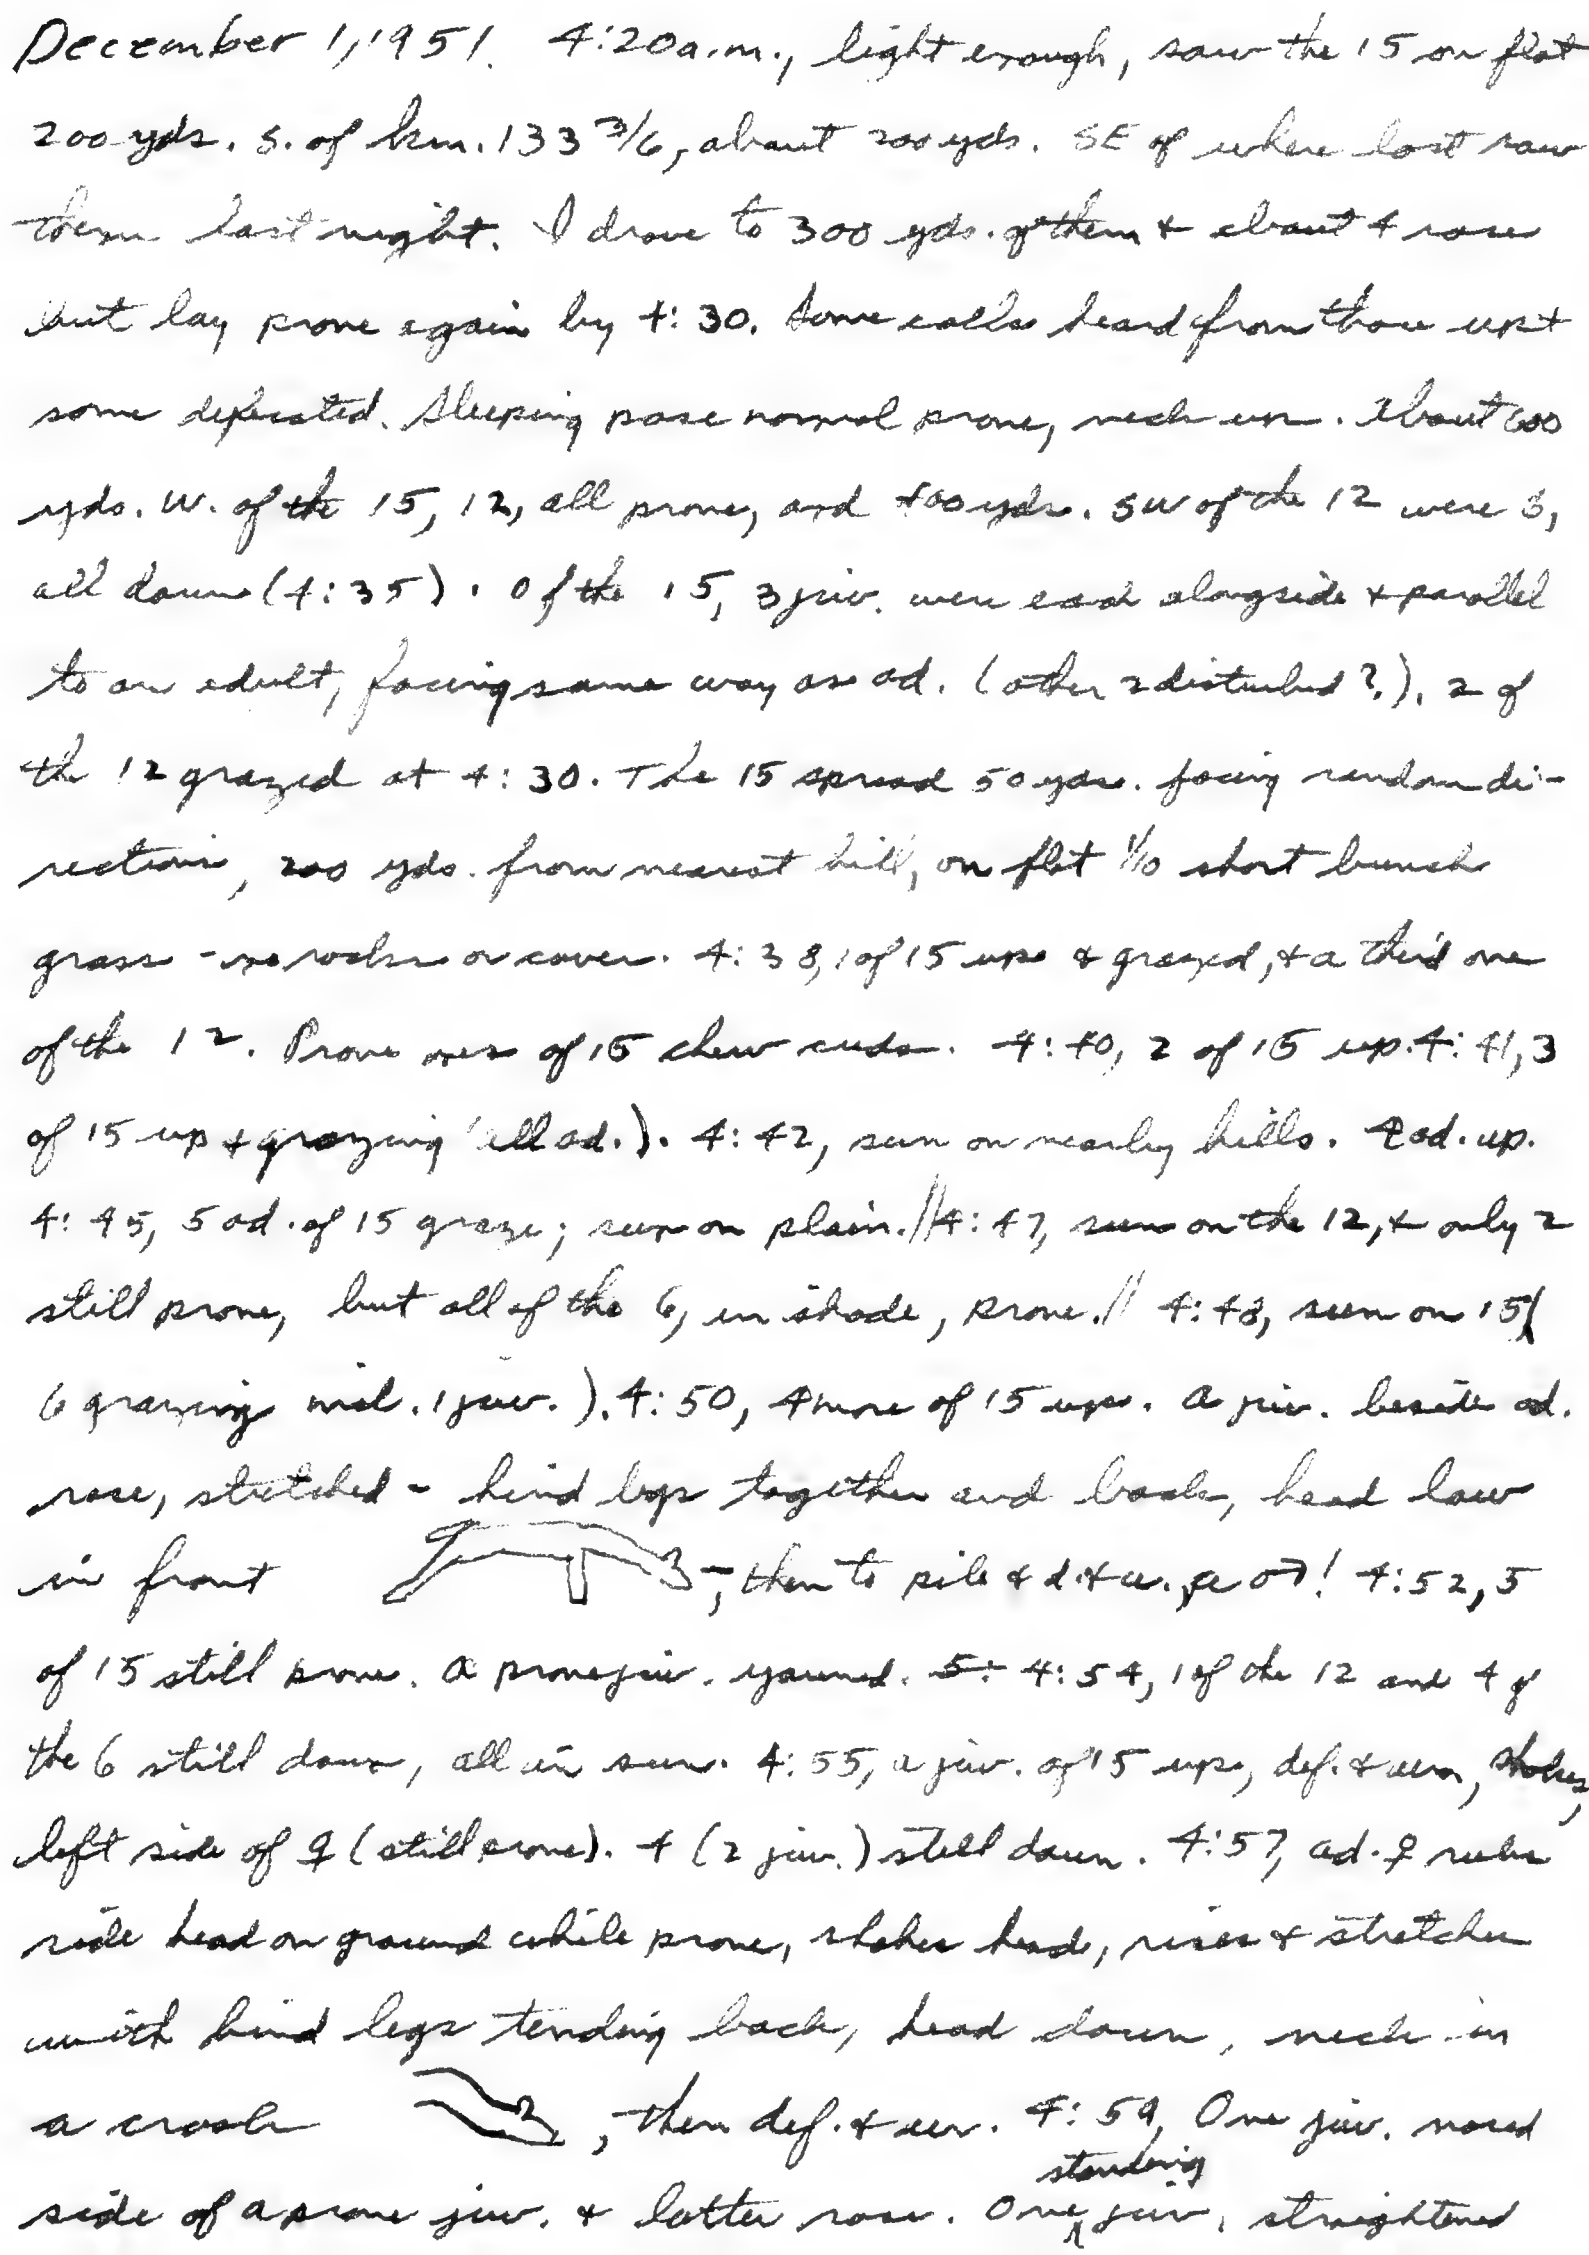 December 1, 1951. 4:20 a.m., light enough, saw the 15 on flat
200 yds. S. of km. 133 3/6, about 200 yds. SE of where last saw
them last night. I drove to 300 yds. of them & about 4 rose
but lay prone again by 4:30. Some calls heard from those up &
some defecated. Sleeping pose normal prone, neck up. About 600
yds. W. of the 15, 12, all prone, and 400 yds. SW of the 12 were 6,
all down (4:35). Of the 15, 3 juv. were each alongside & parallel
to an adult, facing same way as ad. (other 2 disturbed?). 2 of
the 12 grazed at 4:30. The 15 spread 50 yds. facing random di-
rections, 200 yds. from nearest hill, on flat 1/10 short bunch
grass - no rocks or cover. 4:38, 1 of 15 up & grazed, & a third one
of the 12. Prone ones of 15 chew cuds. 4:40, 2 of 15 up. 4:41, 3
of 15 up & grazing (all ad.). 4:42, sun on nearby hills. 4 ad. up.
4:45, 5 ad. of 15 graze; sun on plain. // 4:47, sun on the 12, & only 2
still prone, but all of the 6, in shade, prone. // 4:48, sun on 15 (
6 grazing incl. 1 juv.). 4:50, 4 more of 15 up. A juv. beside ad.
rose, stretched - hind legs together and back, head low
in front -, then to pile & d. & u., a ♂! 4:52, 5
of 15 still prone. A prone juv. yawned. 5: 4:54, 1 of the 12 and 4 of
the 6 still down, all in sun. 4:55, a juv. of 15 up, def. & urin,
left side of ♀ (still prone). 4 (2 juv.) still down. 4:57, ad. ♀ rubs
side head on ground while prone, shakes head, rises & stretches
with hind legs tending back, head down, neck in
a crook , then def. & ur. 4:59, One juv. nosed
side of a prone juv. & latter rose. One standing juv. straightened